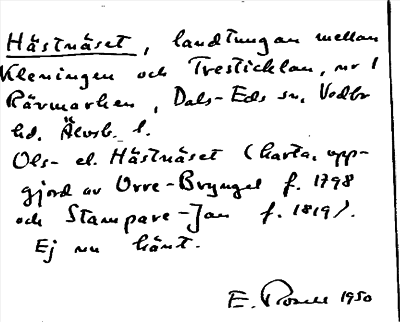 Hästnäset, landtungan mellan
Kleningen och Tresticklan, nr 1
Rävmarken, Dals-Eds sn, Vedbo
hd. Älvsb. l.
Ols- el. Hästnäset (karta, upp-
gjord av Orre-Bryngel f. 1798
och Stampare-Jan f. 1819).
Ej nu känt.
E. 1950